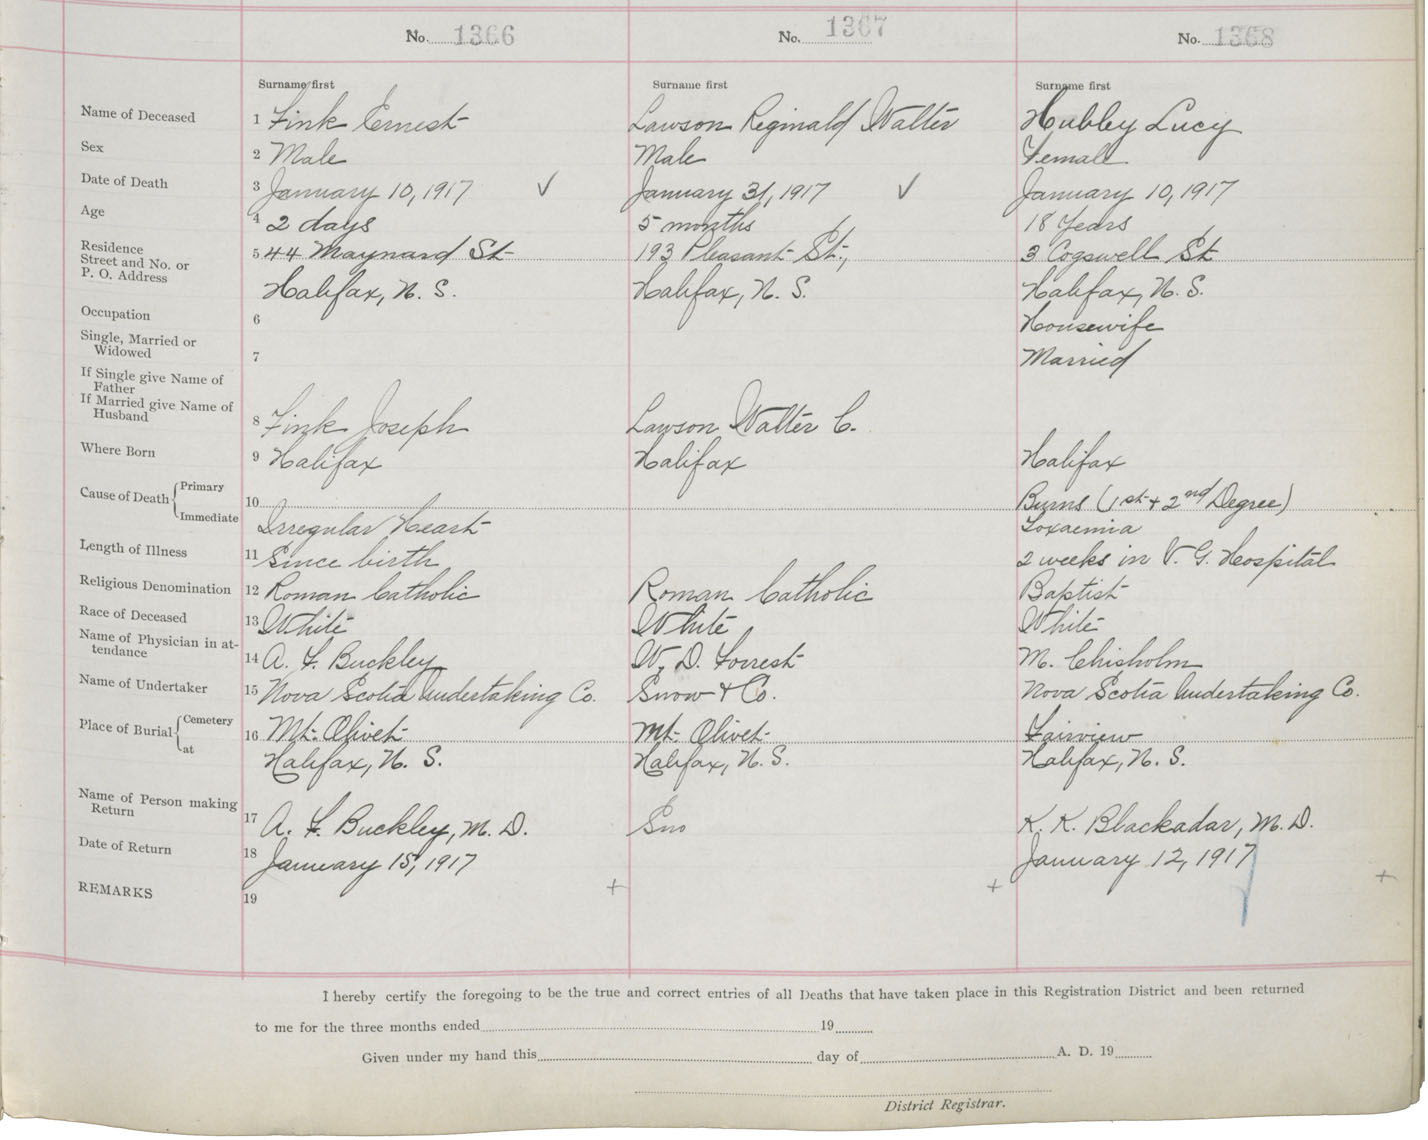 No. 1366
No. 1367
No. 1368
Surname first
Surname first
Surname first
Name of Deceased 1 Fink Ernest
Lawson Reginald Walter
Hubley Lucy
Sex 2 Male
Male
Female
Date of Death 3 January 10, 1917 ✓
January 31, 1917 ✓
January 10, 1917
Age 4 2 days
5 months
18 Years
Residence
Street and No. or
P. O. Address
5 44 Maynard St
193 Pleasant St.,
3 Cogswell St
Halifax, N. S.
Halifax, N. S.
Halifax, N. S.
Occupation 6
Housewife
Single, Married or
Widowed
7
Married
If Single give Name of
Father
If Married give Name of
Husband
8 Fink Joseph
Lawson Walter C.
Where Born 9 Halifax
Halifax
Halifax
Cause of Death { Primary
Immediate
10
Irregular Heart
Burns (1st + 2nd Degree)
Toxaemia
Length of Illness 11 Since birth
2 weeks in V. G. Hospital
Religious Denomination 12 Roman Catholic
Roman Catholic
Baptist
Race of Deceased 13 White
White
White
Name of Physician in at-
tendance
14 A. F. Buckley
W. D. Forrest
M. Chisholm
Name of Undertaker 15 Nova Scotia Undertaking Co.
Snow & Co.
Nova Scotia Undertaking Co.
Place of Burial { Cemetery
at
16 Mt. Olivet
Mt. Olivet
Fairview
Halifax, N. S.
Halifax, N. S.
Halifax, N. S.
Name of Person making
Return
17 A. F. Buckley, M. D.
Sno
K. K. Blackadar, M. D.
Date of Return 18 January 15, 1917
January 12, 1917
REMARKS 19
+
+
+
I hereby certify the foregoing to be the true and correct entries of all Deaths that have taken place in this Registration District and been returned
to me for the three months ended 19
Given under my hand this day of A. D. 19
District Registrar.